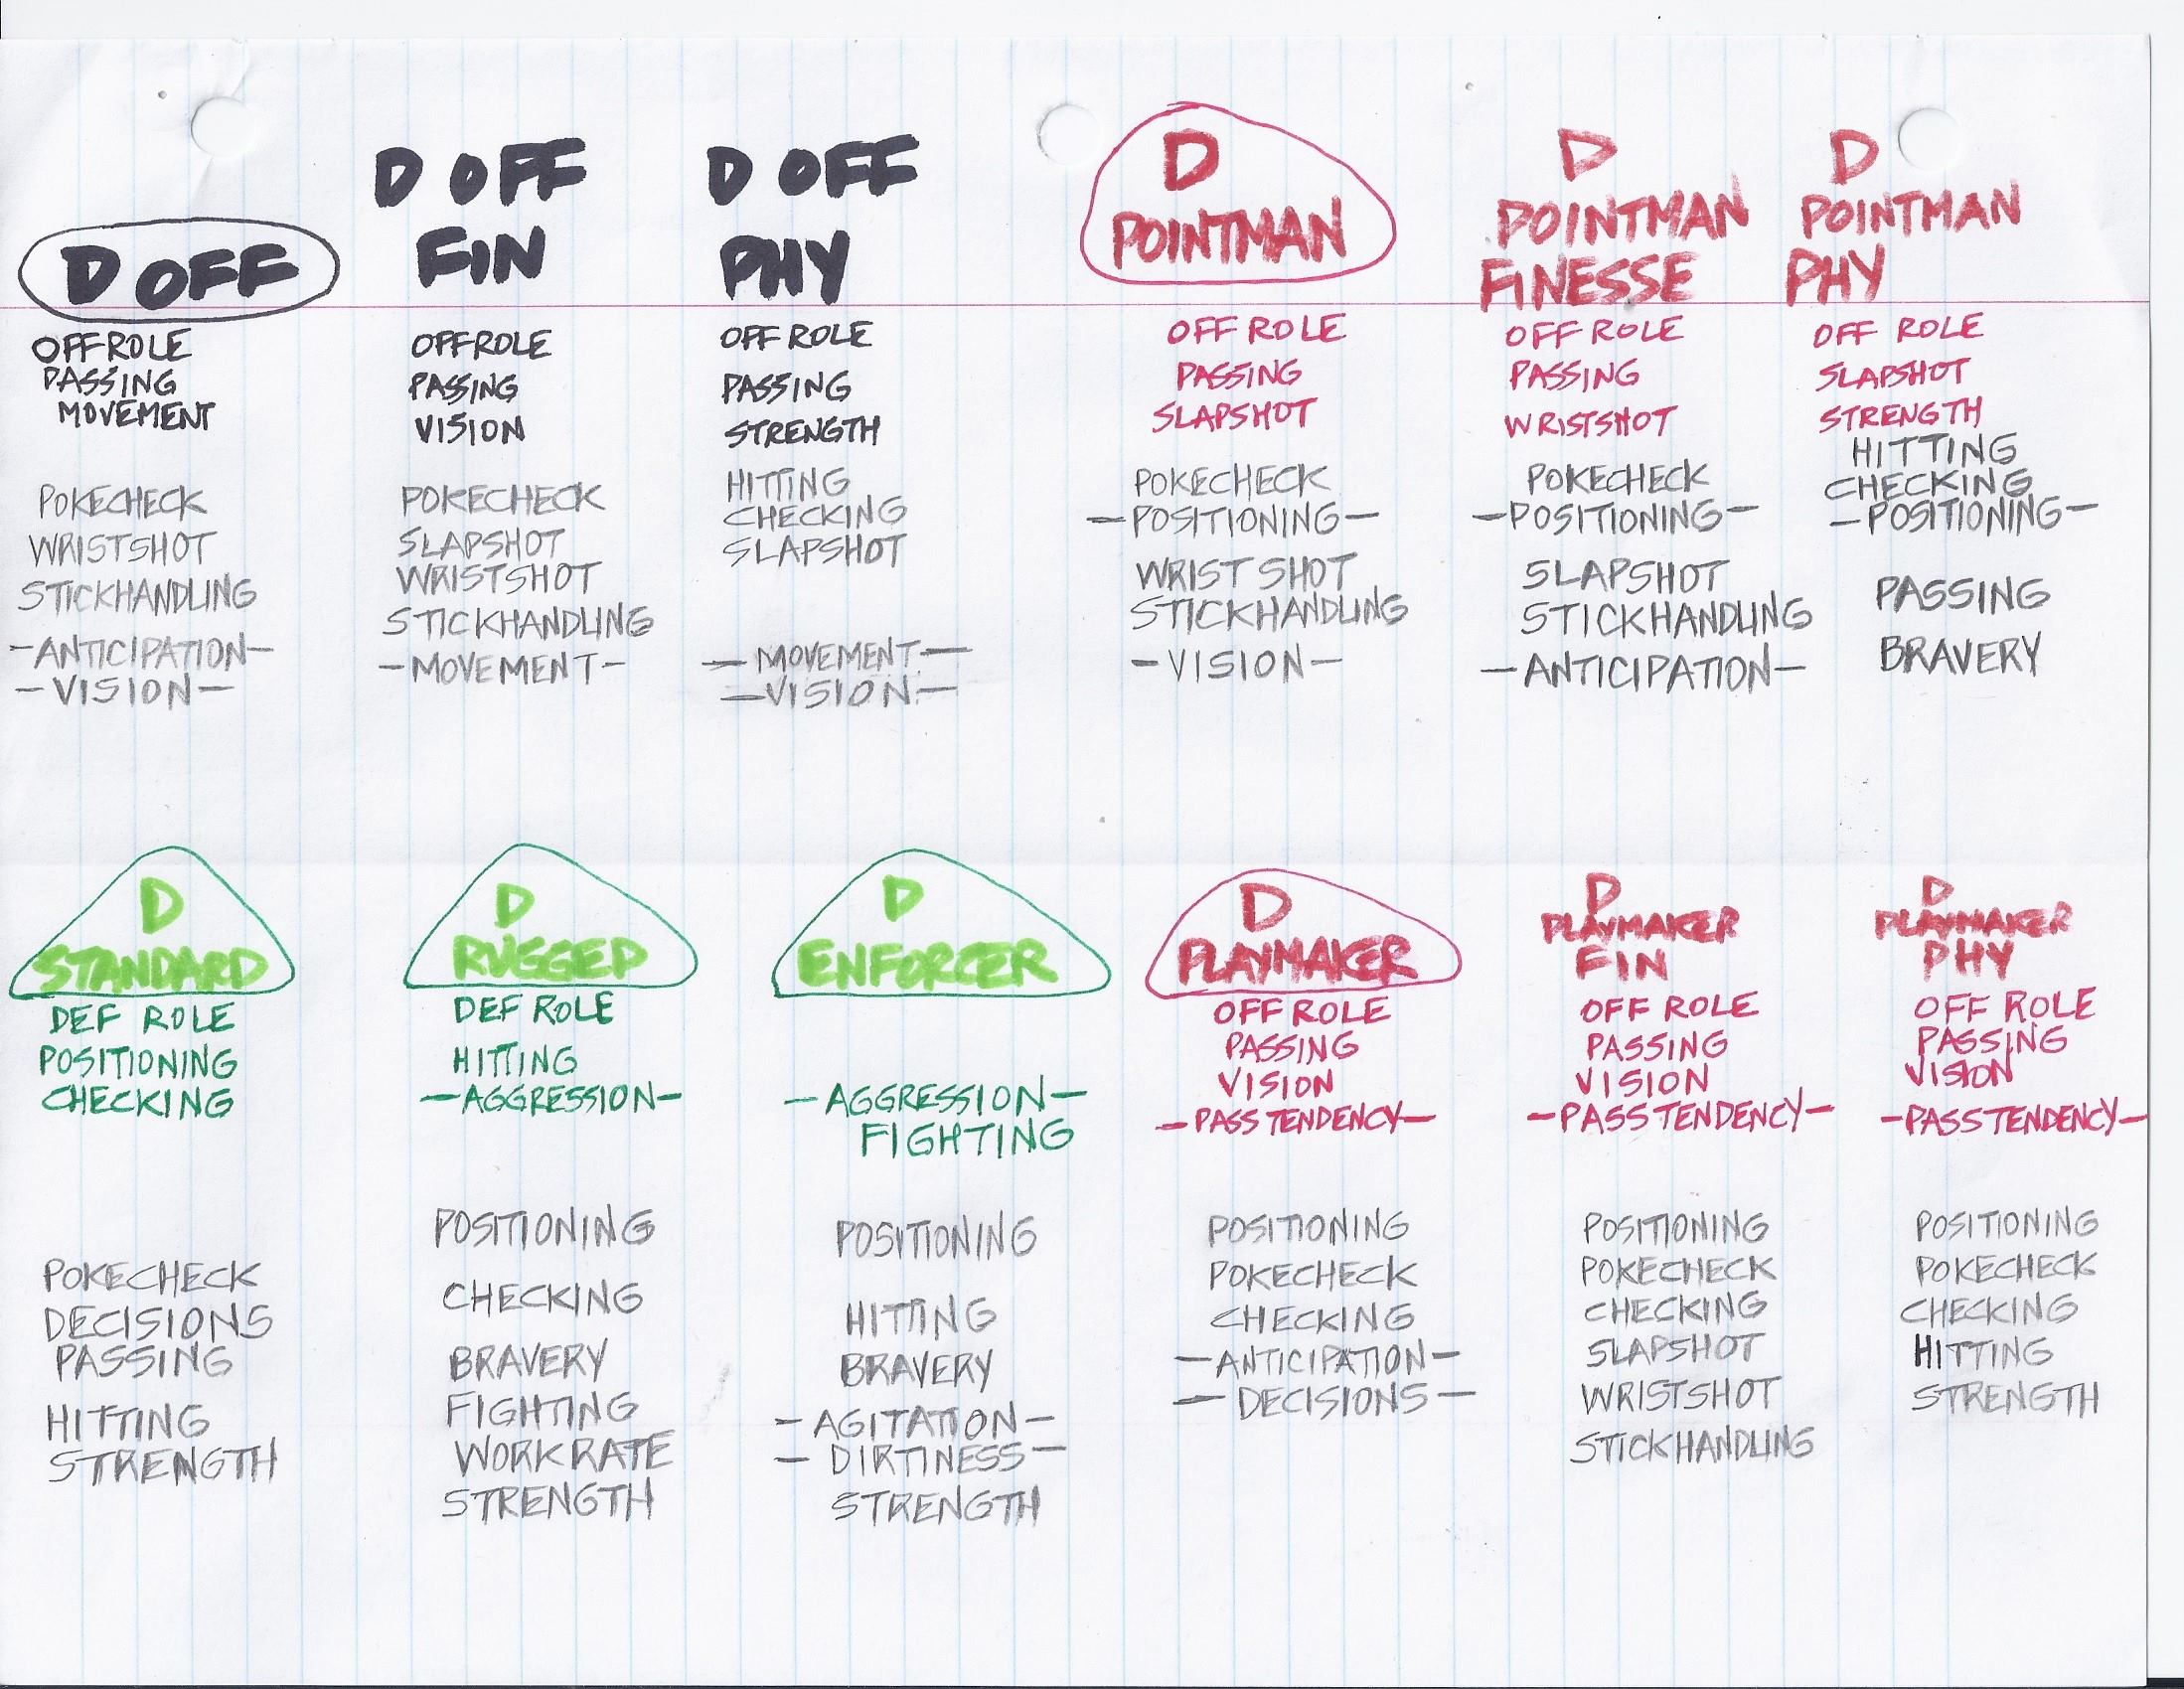 D OFF
OFFROLE
PASSING
MOVEMENT
POKECHECK
WRISTSHOT
STICKHANDLING
-ANTICIPATION-
-VISION-
D OFF
FIN
OFFROLE
PASSING
VISION
POKECHECK
SLAPSHOT
WRISTSHOT
STICKHANDLING
-MOVEMENT-
D OFF
PHY
OFF ROLE
PASSING
STRENGTH
HITTING
CHECKING
SLAPSHOT
-MOVEMENT-
-VISION-
D
POINTMAN
OFF ROLE
PASSING
SLAPSHOT
POKECHECK
-POSITIONING-
WRIST SHOT
STICKHANDLING
-VISION-
D
POINTMAN
FINESSE
OFF ROLE
PASSING
WRISTSHOT
POKECHECK
-POSITIONING-
SLAPSHOT
STICKHANDLING
-ANTICIPATION-
D
POINTMAN
PHY
OFF ROLE
SLAPSHOT
STRENGTH
HITTING
CHECKING
-POSITIONING-
PASSING
BRAVERY
D
STANDARD
DEF ROLE
POSITIONING
CHECKING
POKECHECK
DECISIONS
PASSING
HITTING
STRENGTH
D
RUGGED
DEF ROLE
HITTING
-AGGRESSION-
POSITIONING
CHECKING
BRAVERY
FIGHTING
WORK RATE
STRENGTH
D
ENFORCER
-AGGRESSION-
FIGHTING
POSITIONING
HITTING
BRAVERY
-AGITATION-
-DIRTINESS-
STRENGTH
D
PLAYMAKER
OFF ROLE
PASSING
VISION
-PASS TENDENCY-
POSITIONING
POKECHECK
CHECKING
-ANTICIPATION-
-DECISIONS-
D
PLAYMAKER
FIN
OFF ROLE
PASSING
VISION
-PASS TENDENCY-
POSITIONING
POKECHECK
CHECKING
SLAPSHOT
WRISTSHOT
STICKHANDLING
D
PLAYMAKER
PHY
OFF ROLE
PASSING
VISION
-PASS TENDENCY-
POSITIONING
POKECHECK
CHECKING
HITTING
STRENGTH